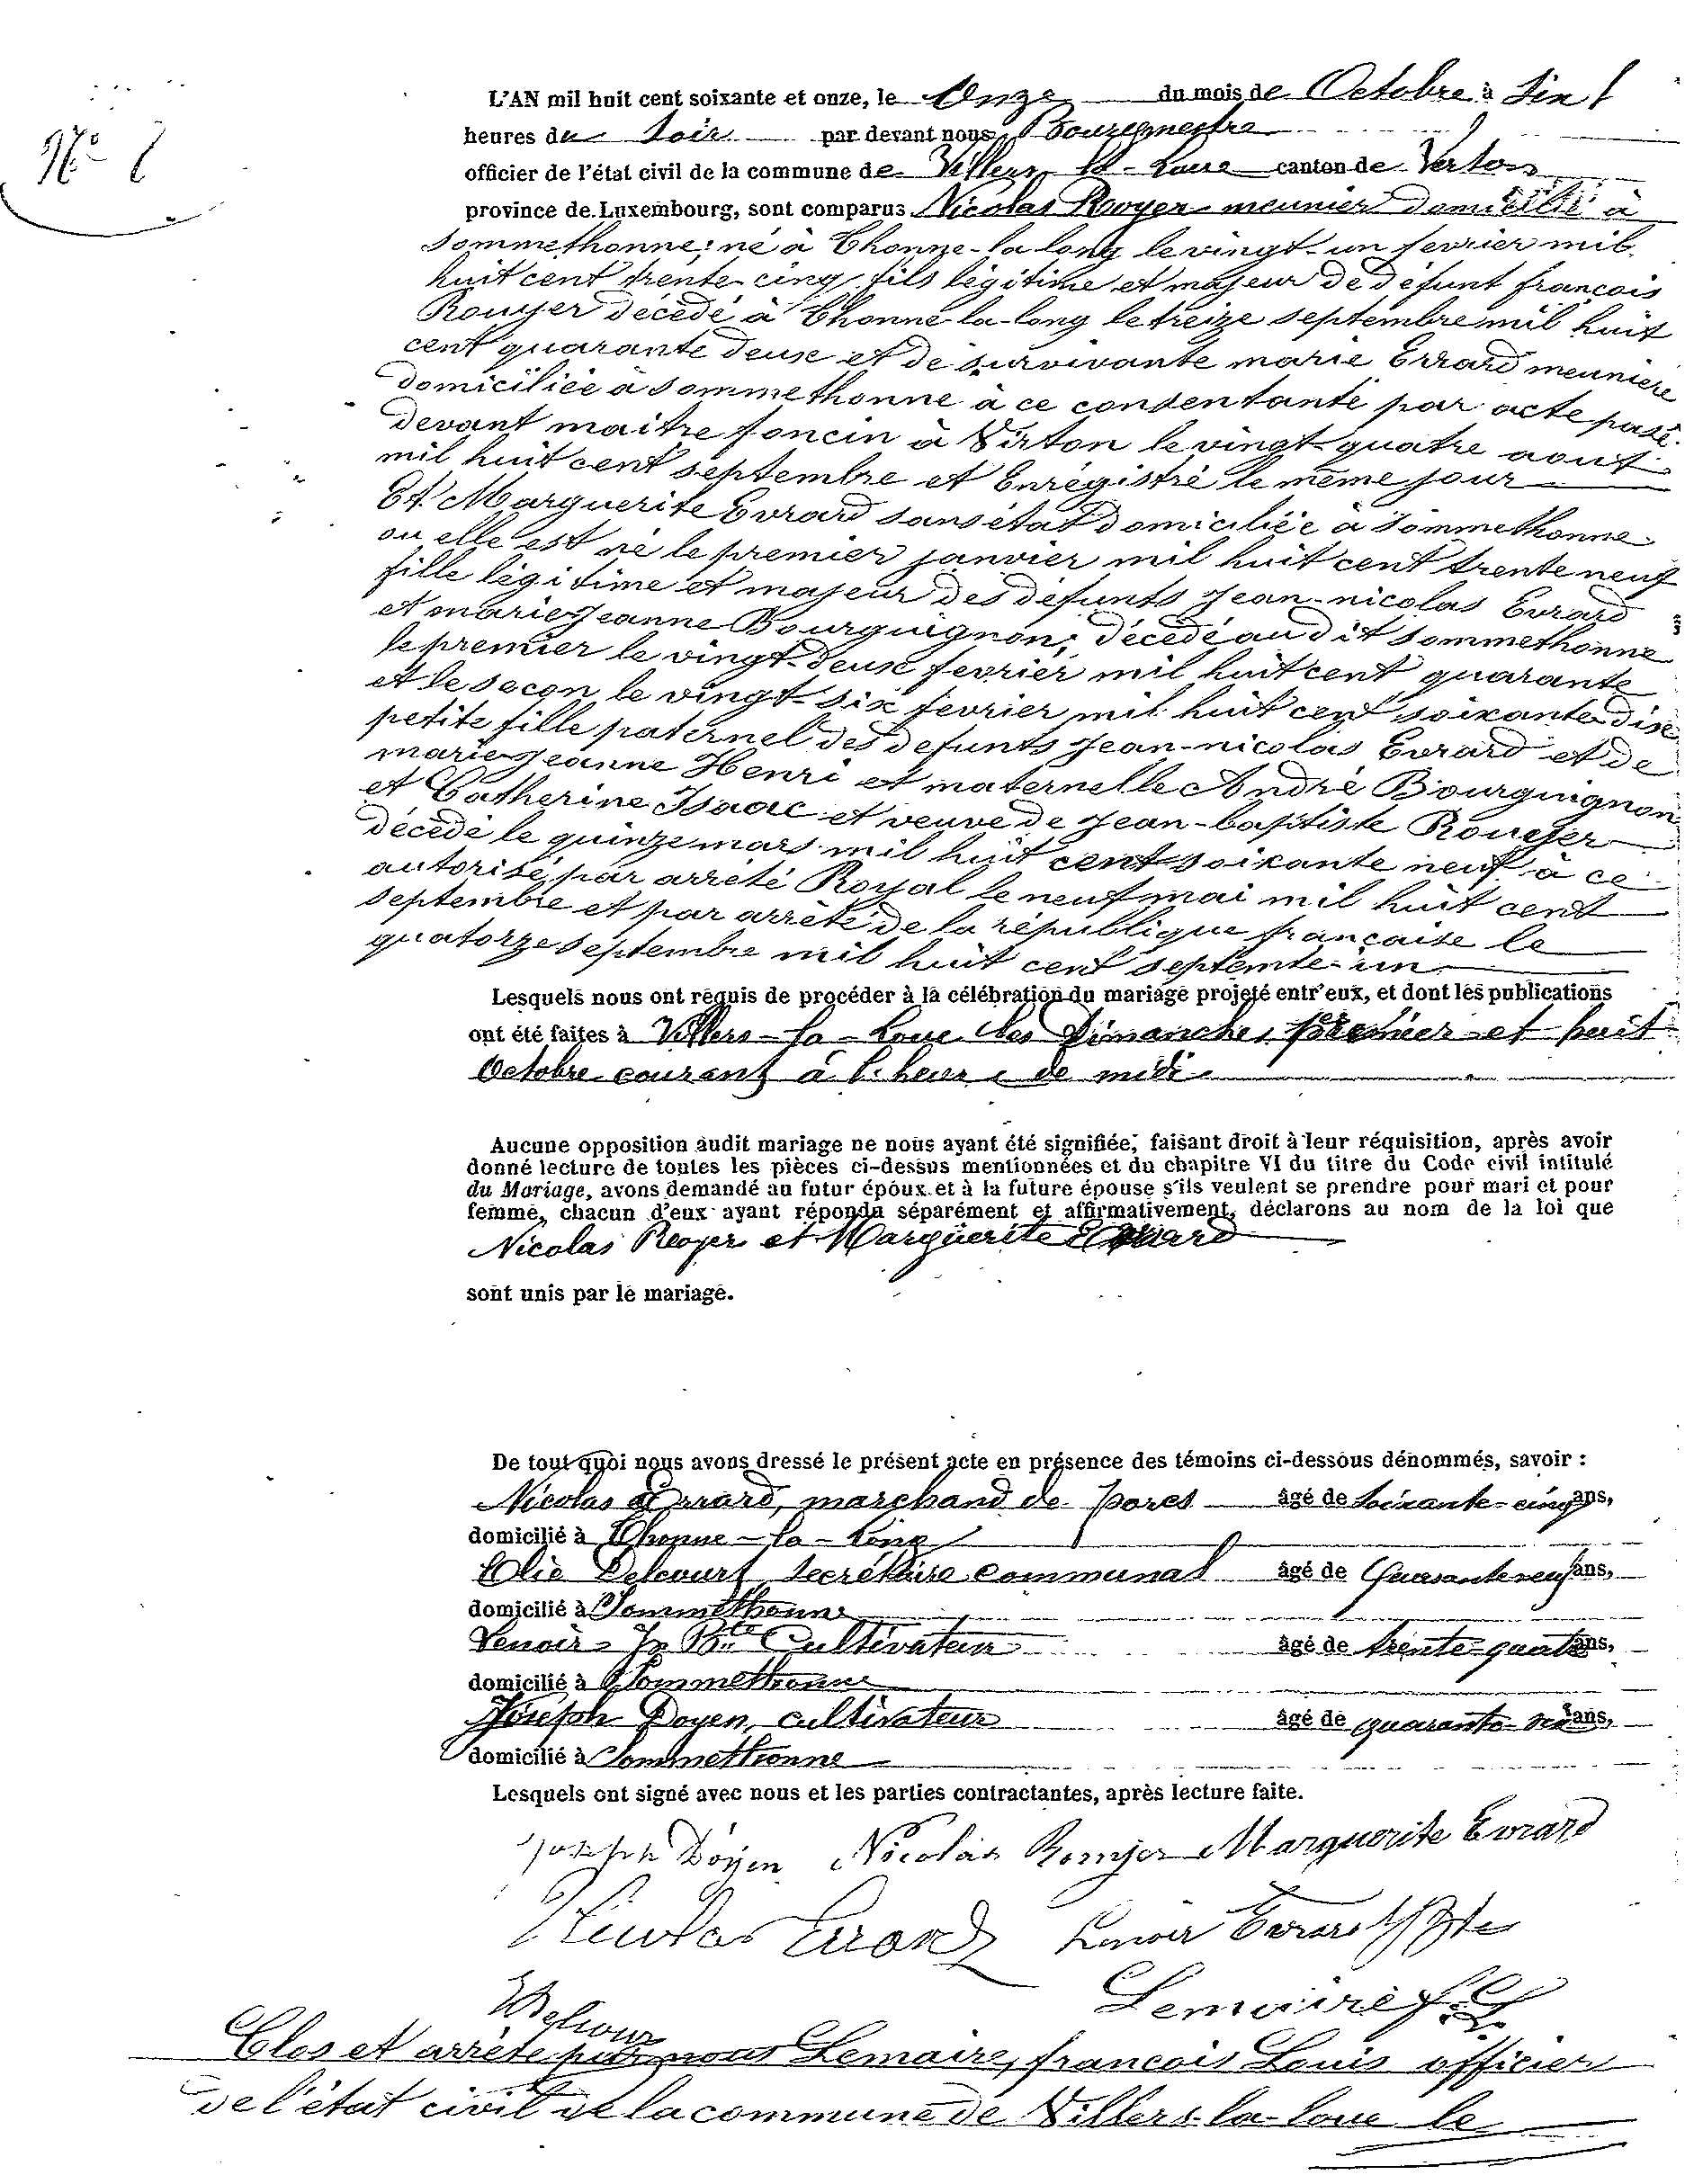 L'AN mil huit cent soixante et onze, le Onze du mois de Octobre à Six
heures du Soir par devant nous, Bourgmestre
officier de l'état civil de la commune de Villers-la-Loue canton de Virton
province de Luxembourg, sont comparus Nicolas Royer meunier domicilié à
Nº
sommethonne, né à Thonne-la-long le vingt-un fevrier mil
huit cent trente-cinq, fils légitime et majeur de défunt françois
Rouyer décédé à Thonne-la-long le treize septembre mil huit
cent quarante deux et de survivante marie Evrard meuniere
domiciliée à sommethonne à ce consentante par acte passé
devant maitre foncin à Virton le vingt-quatre aout
mil huit cent septembre et Enrégistré le même jour
Et Marguerite Evrard sans état domiciliée à Sommethonne
ou elle est né le premier janvier mil huit cent trente neuf
fille légitime et majeur des défunts Jean-nicolas Evrard
et marie Jeanne Bourguignon, décédé au dit sommethonne
le premier le vingt-deux fevrier mil huit cent quarante
et le secon le vingt-six fevrier mil huit cent soixante dix
petite fille paternel des defunts Jean-nicolas Evrard et de
marie Jeanne Henri et maternelle André Bourguignon
et Catherine Isaac et veuve de Jean-baptiste Rouyer
décédé le quinze mars mil huit cent soixante neuf à ce
autorisé par arrêté Royal le neuf mai mil huit cent
septembre et par arrêté de la république française le
quatorze septembre mil huit cent septente-un
Lesquels nous ont requis de procéder à la célébration du mariage projeté entr'eux, et dont les publications
ont été faites à Villers-la-Loue les Dimanches premier et huit
Octobre courant à l'heure de midi
Aucune opposition audit mariage ne nous ayant été signifiée, faisant droit à leur réquisition, après avoir
donné lecture de toutes les pièces ci-dessus mentionnées et du chapitre VI du titre du Code civil intitulé
du Mariage, avons demandé au futur époux et à la future épouse s'ils veulent se prendre pour mari et pour
femme, chacun d'eux ayant répondu séparément et affirmativement, déclarons au nom de la loi que
Nicolas Royer et Marguerite Evrard
sont unis par le mariage.
De tout quoi nous avons dressé le présent acte en présence des témoins ci-dessous dénommés, savoir :
Nicolas Evrard, marchand de porcs âgé de soixante-cinq ans,
domicilié à Thonne-la-Long
Elie Delcourt secrétaire communal âgé de Quarante neuf ans,
domicilié à Sommethonne
Lenoir Jn Bte Cultivateur âgé de trente-quatre ans,
domicilié à Sommethonne
Joseph Doyen, cultivateur âgé de quarante-six ans,
domicilié à Sommethonne
Lesquels ont signé avec nous et les parties contractantes, après lecture faite.
Joseph Doyen Nicolas Rouyer Marguerite Evrard
Nicolas Evrard Lenoir Evrard JBte
Lemaire f. L.
Delcourt
Clos et arrêté par nous Lemaire, francois Louis officier
de l'état civil de la commune de Villers-la-Loue le